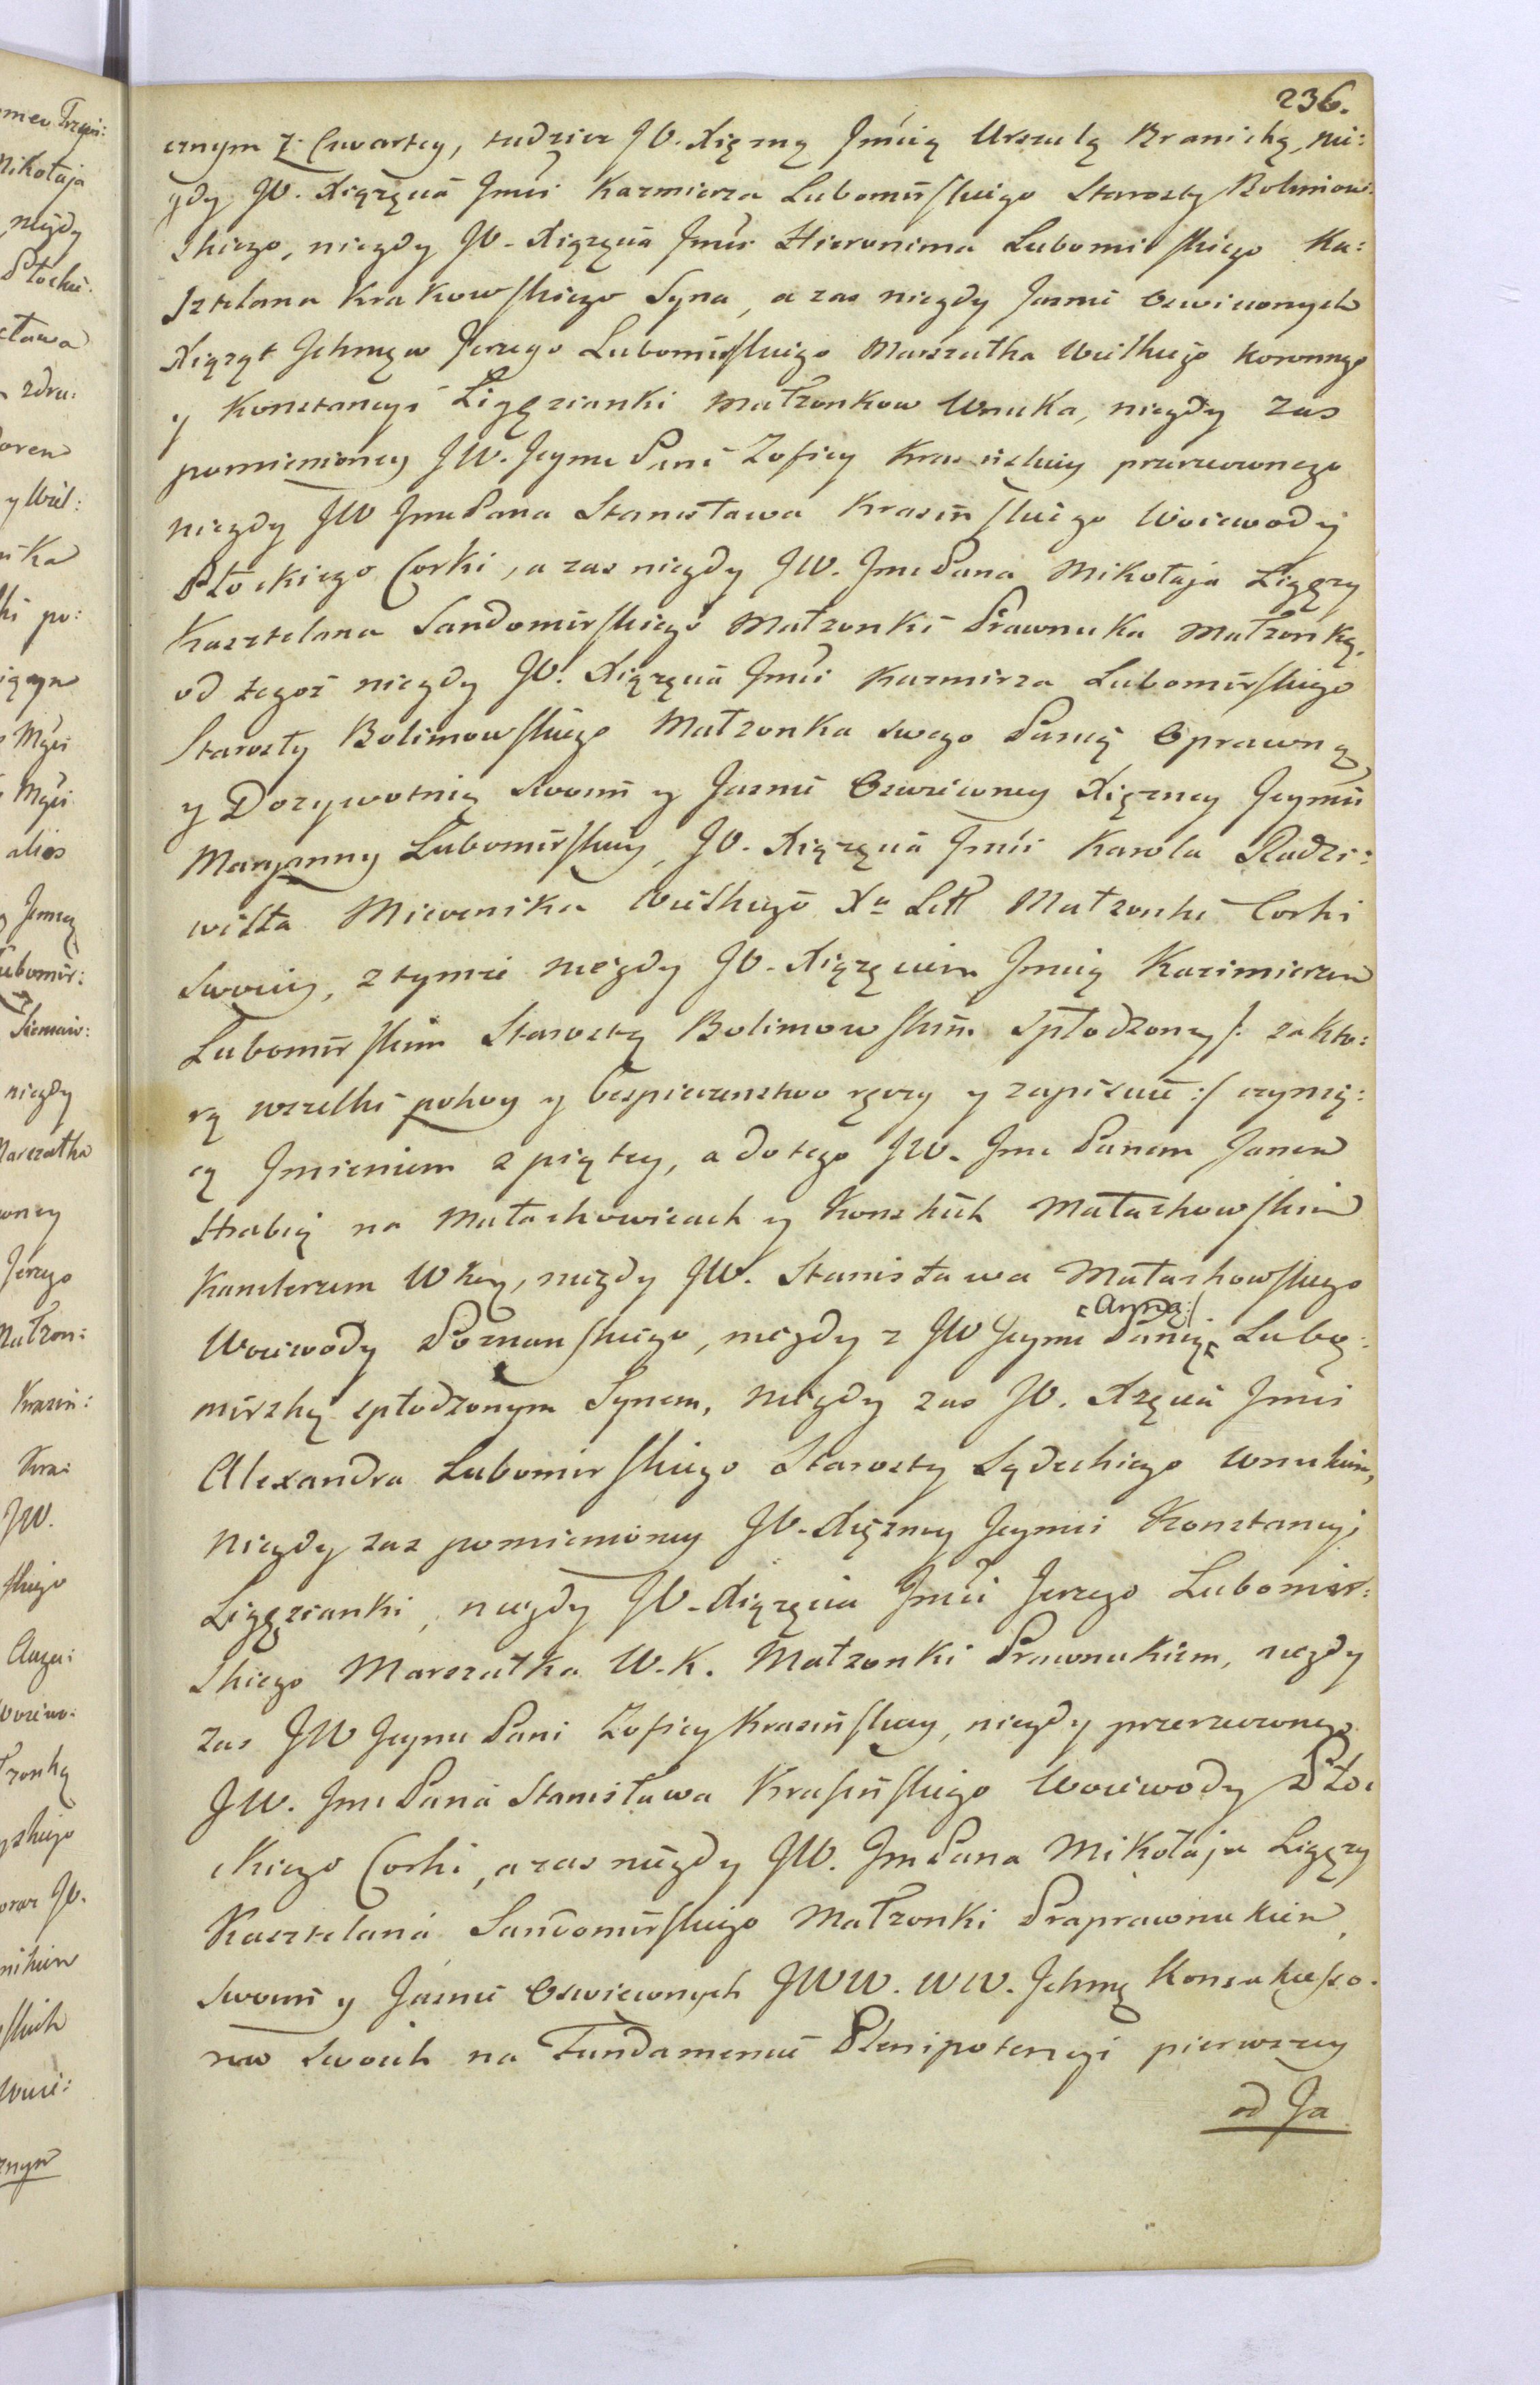 236.
cznym z Czwartey, tudziez JO. Xiężną Jmcią Urszulą Branicką, nie:
gdy JO. Xiążęcia Jmci Kazmierza Lubomirskiego Starosty Bolimow:
skiego, niegdy JO. Xiążęcia Jmci Hieronima Lubomirskiego Ka:
sztelana Krakowskiego Syna, a zas niegdy Jasnie Oswieconych
Xiążąt Jchmcow Jerzego Lubomirskiego Marszałka Wielkiego Koronnego
y Konstancyi Ligęzianki Małżonkow Wnuka, niegdy zas
pomienioney JW. Jeymc Pani Zofiey Krasinskiey przerzeczonego
niegdy JW Jmc Pana Stanisława Krasinskiego Woiewody
Płockiego Corki, a zas niegdy JW. Jmc Pana Mikołaja Ligęzy
Kasztelana Sandomirskiego Małzonki Prawnuka Małzonką,
od tegoż niegdy JO. Xiążęcia Jmci Kazmirza Lubomirskiego
Starosty Bolimowskiego Małzonka swego Panią Oprawną
y Dozywotnią Swoim y Jasnie Oswieconey Xiężney Jeymci
Maryanny Lubomirskiey, JO. Xiążęcia Jmci Karola Radzi:
wiłła Miecznika Wielkiego Xa Litt Małzonki Corki
Swoiey, z tymże niegdy JO. Xiążęciem Jmcią Kazimierzem
Lubomirskim Starostą Bolimowskim Spłodzoney /: za kto:
rą wszelki pokoy y bespieczenstwo ręczy y zapisuie :/ czynią:
cą Jmieniem z piątey, a do tego JW. Jmc Panem Janem
Hrabią na Małachowicach y Konskich Małachowskim
Kanclerzem WKor, niegdy JW. Stanisława Małachowskiego
Woiewody Poznanskiego, niegdy z JW Jeymc Panią Anną :/ Lubo:
mirską spłodzonym Synem, niegdy zas JO. Xżęcia Jmci
Alexandra Lubomirskiego Starosty Sądeckiego Wnukiem,
niegdy zas pomienioney JO. Xiężney Jeymci Konstancyi
Ligęzianki, niegdy JO. Xiążęcia Jmci Jerzego Lubomir:
skiego Marszałka W. K. Małzonki Prawnukiem, niegdy
zas JW Jeymc Pani Zofiey Krasinskiey, niegdy przerzeczonego
JW. Jmc Pana Stanisława Krasinskiego Woiewody Pło:
ckiego Corki, a zas niegdy JW. Jmc Pana Mikołaja Ligęzy
Kasztelana Sandomirskiego Małzonki Praprawnukiem,
Swoim y Jasnie Oswieconych JWW. WW. Jchmc Konsukcesso:
row Swoich na Fundamencie Plenipotencyi pierwszey
od Ja